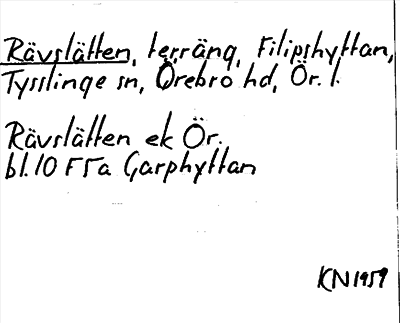 Rävslätten, terräng, Filipshyttan,
Tysslinge sn, Örebro hd, Ör. l.
Rävslätten ek Ör.
bl. 10 F 5 a Garphyttan
KN 1959